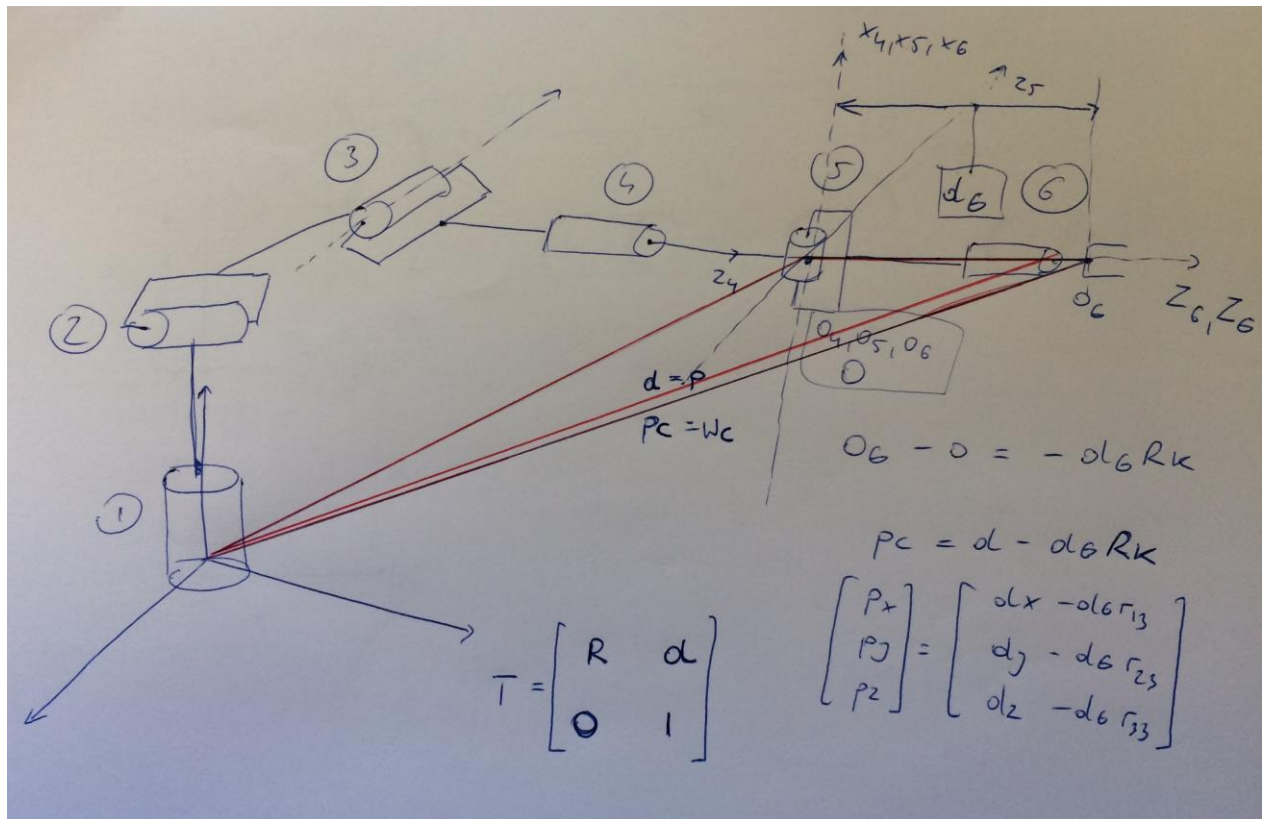 x4, x5, x6
z5
3
4
5
d6
6
2
z4
o6
Z6, Z6
o4, o5, o6
O
d = p
pc = wc
o6 - o = - d6 Rk
1
pc = d - d6 Rk
T = [ R d
0 1 ]
[ px
py
pz ] = [ dx - d6 r13
dy - d6 r23
dz - d6 r33 ]